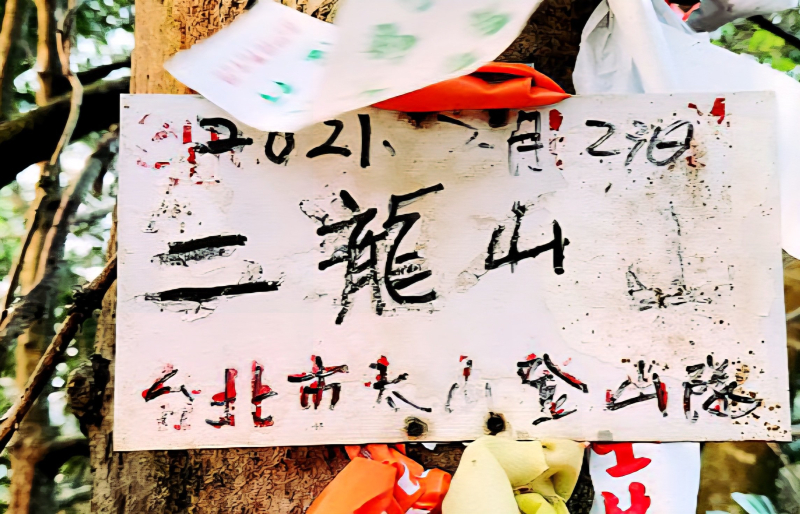 2021、月2日
二龍山
台北市太小登山隊